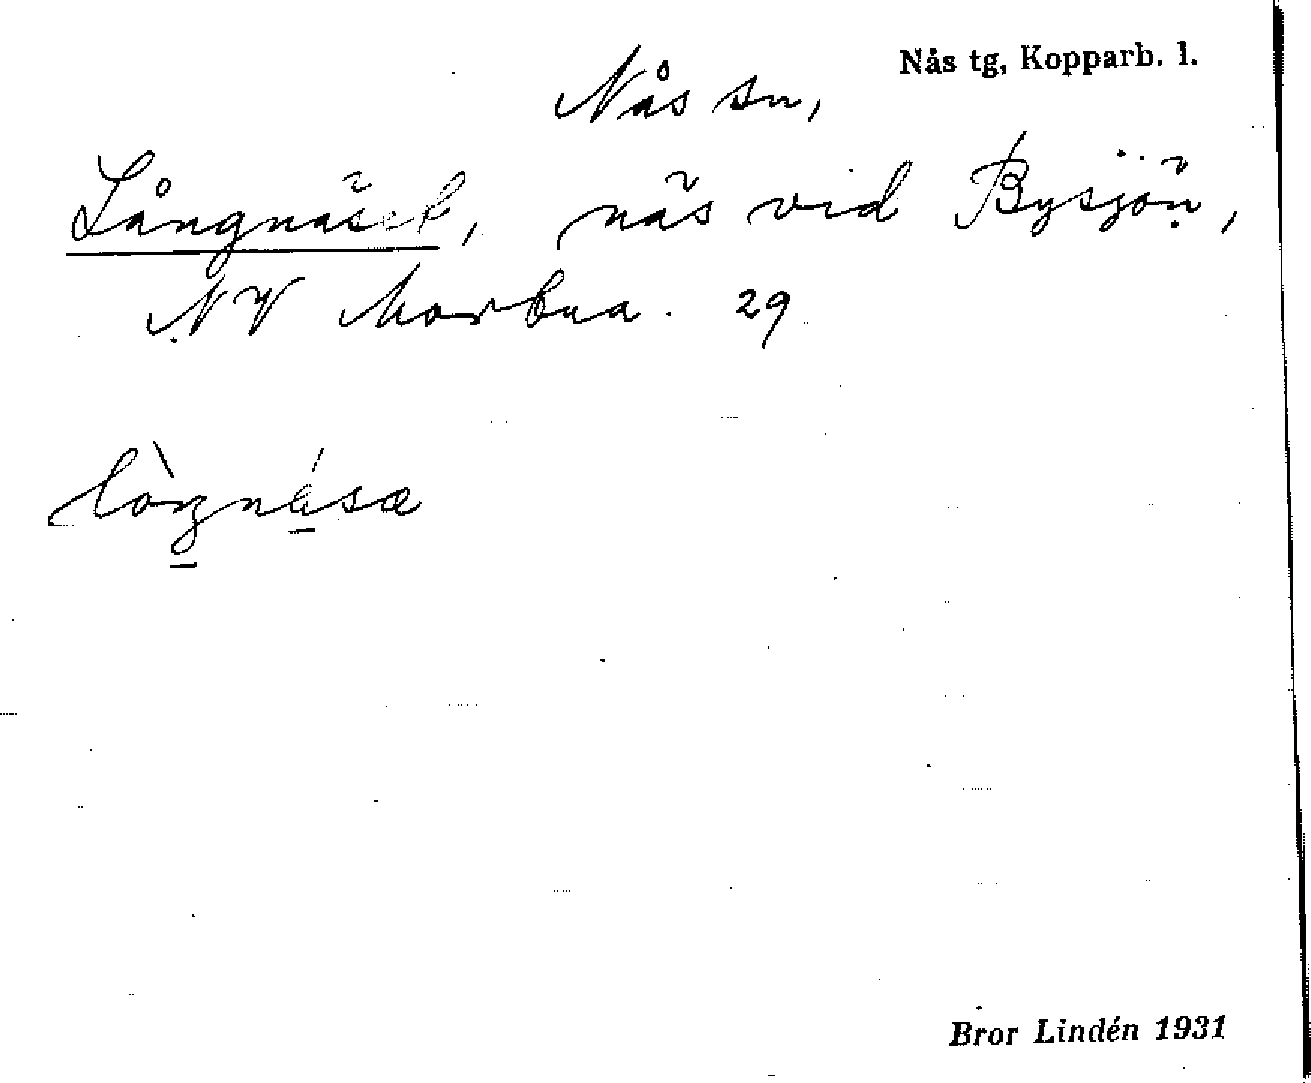 Nås tg, Kopparb. l.
Nås sn,
Långnäset, näs vid Bysjön,
NV Morbua. 29
Bror Lindén 1931